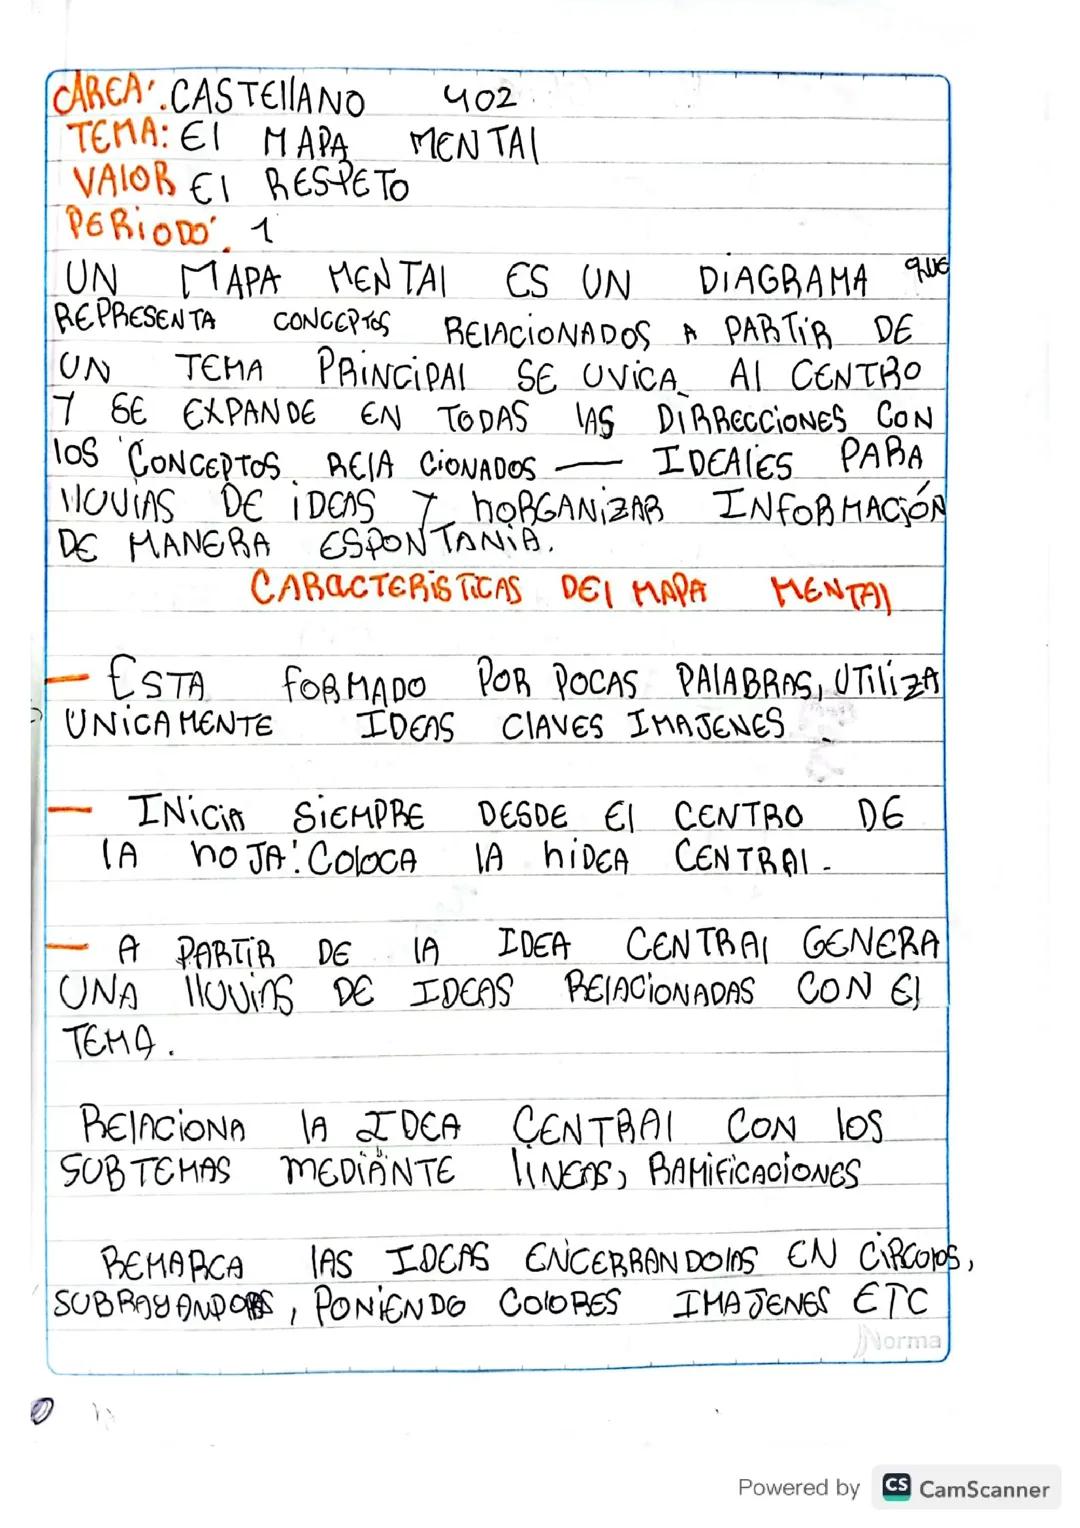 AREA: CASTEllANO 402
TEMA: El MAPA MENTAl
VAlOR El RESPETO
PERiODO: 1
UN MAPA MENTAl ES UN DIAGRAMA que
REPRESENTA CONCEPTOS RElACiONADOS A PARTiR DE
UN TEMA PRiNCiPAl SE UVICA Al CENTRO
Y SE EXPANDE EN TODAS lAS DiRRECCiONES CON
lOS CONCEPTOS RElA CiONADOS — IDEAlES PARA
llUViAS DE iDEAS Y hORGANiZAR INFORMACiÓN
DE MANERA ESPONTANiA.
CARACTERiSTiCAS DEl MAPA MENTAl
- ESTA fORMADO POR POCAS PAlABRAS, UTiliZA
UNiCAMENTE IDEAS ClAVES IMAJENES
- INiCiA SiEMPRE DESDE El CENTRO DE
lA hOJA: COlOCA lA hiDEA CENTRAl.
- A PARTiR DE lA IDEA CENTRAl GENERA
UNA llUViAS DE IDEAS RElACiONADAS CON El
TEMA.
RElACiONA lA IDEA CENTRAl CON lOS
SUBTEMAS MEDiANTE lINEAS, RAMiFiCACiONES
REMARCA lAS IDEAS ENCERRANDOlAS EN CiRCOlOS,
SUBRAYANDOlAS, PONiENDO COlORES IMAJENES ETC
Norma
Powered by CS CamScanner